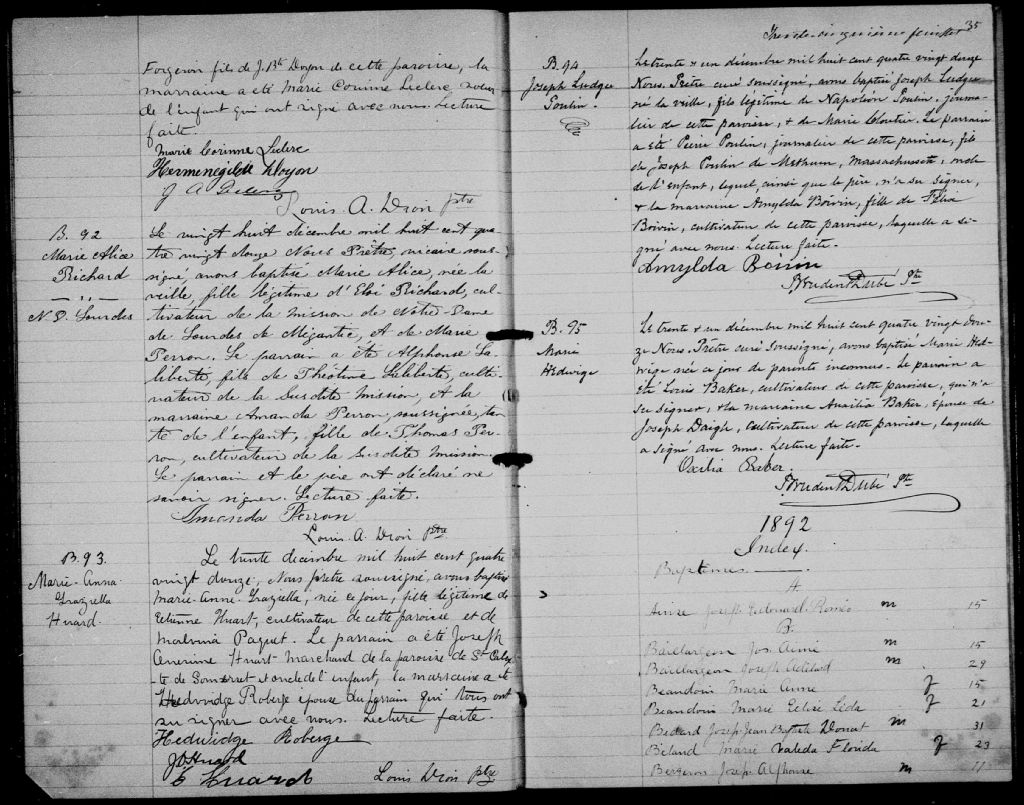 Forgeron fils de J. Bte Doyon de cette paroisse, la
marraine a été Marie Corinne Leclerc soeur
de l'enfant qui ont signé avec nous. Lecture
faite.
Marie Corinne Leclerc
Hermenégilde Doyon
J A Leclerc
Louis. A. Dion ptre
B. 92
Marie Alice
Richard
N. D. Lourdes
Le vingt huit décembre mil huit cent qua
tre vingt douze Nous Prêtre, vicaire sous-
signé avons baptisé Marie Alice, née la
veille, fille légitime d'Eloi Richard, cul-
tivateur de la mission de Notre-Dame
de Lourdes de Mégantic, et de Marie
Perron. Le parrain a été Alphonse La-
liberté, fils de Théotime Laliberté, culti-
vateur de la susdite mission, et la
marraine Amanda Perron, soussignée, tan-
te de l'enfant, fille de Thomas Per-
ron, cultivateur de la susdite mission.
Le parrain et le père ont déclaré ne
savoir signer. Lecture faite.
Amanda Perron
Louis. A. Dion Ptre
B. 93.
Marie-Anna-
Grazella
Huard.
Le trente décembre mil huit cent quatre
vingt douze, Nous prêtre soussigné, avons baptisé
Marie-Anne-Grazella, née ce jour, fille légitime de
Etienne Huart, cultivateur de cette paroisse et de
Malvina Paquet. Le parrain a été Joseph
Huart-Marchand de la paroisse de St-Calix-
te de Somerset oncle de l'enfant, la marraine a été
Hedwidge Roberge épouse du parrain qui tous ont
su signer avec nous. Lecture faite.
Hedwidge Roberge
J Huard
E Huard
Louis Dion ptre
35
Trente-cinquième feuillet
B. 94
Joseph Ludger
Poulin.
Le trente & un décembre mil huit cent quatre vingt douze
Nous. Prêtre curé soussigné, avons baptisé Joseph Ludger
né la veille, fils légitime de Napoléon Poulin. journa-
lier de cette paroisse, & de Marie Cloutier. Le parrain
a été Pierre Poulin, journalier de cette paroisse, fils
de Joseph Poulin de Methuen, Massachusett, oncle
de l'enfant, lequel, ainsi que le père, n'a su signer,
& la marraine Amylda Boivin, fille de Félix
Boivin, cultivateur de cette paroisse, laquelle a si-
gné avec nous. Lecture faite.
Amylda Boivin
Prudent Dubé Ptre
B. 95
Marie
Hedwige
Le trente & un décembre mil huit cent quatre vingt dou-
ze Nous. Prêtre curé soussigné, avons baptisé Marie Hed-
wige née ce jour de parents inconnus. Le parrain a
été Louis Baker, cultivateur de cette paroisse, qui n'a
su signer, & la marraine Auxilia Baker, épouse de
Joseph Daigle, cultivateur de cette paroisse, laquelle
a signé avec nous. Lecture faite.
Oxilia Baker.
Prudent Dubé Ptre
1892
Index.
Baptêmes
A
Joseph Edouard Roméo m 15
B.
Baillargeon Jos. Aimé m 15
Baillargeon Joseph Adélard m 29
Beaudoin Marie Anne f 15
Beaudoin Marie Lida f 21
Bedard Joseph Jean Baptiste Donat m 31
Béland Marie Valeda Florida f 23
Bergeron Joseph Alphonse m 11